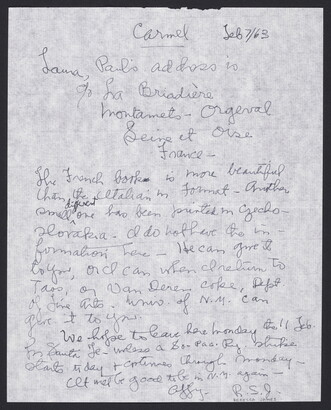 Carmel Feb 7/63
Laura, Paul's address is
c/o La Briadiere
Montamets - Orgeval
Seine et Oise
France -
The French book is more beautiful
than the Italian in format - Another
small one has been printed in Czecho-
slovakia - I do not have the in-
formation here - He can give it
to you, or I can when I return to
Taos, or Van Deren Coke, Dept
of Fine Arts. Univ. of N.M. can
give it to you.
We hope to leave here Monday the 11 Feb.
for Santa Fe - unless a So. Pac. Ry. strike
starts today & continues through Monday -
It will be good to be in N.M. again -
Affy. R.S.J.